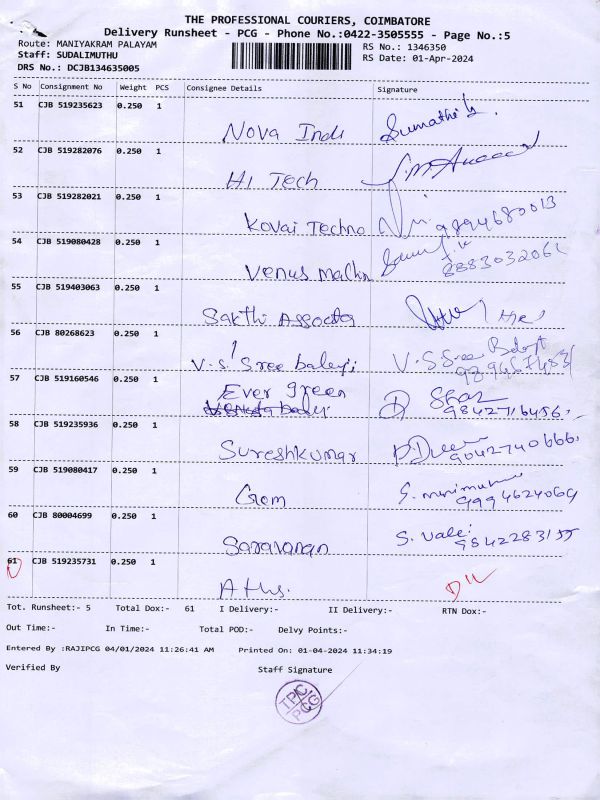 THE PROFESSIONAL COURIERS, COIMBATORE
Delivery Runsheet - PCG - Phone No.:0422-3505555 - Page No.:5
Route: MANIYAKRAM PALAYAM
RS No.: 1346350
Staff: SUDALIMUTHU
RS Date: 01-Apr-2024
DRS No.: DCJB134635005
S No Consignment No Weight PCS Consignee Details Signature
51 CJB 519235623 0.250 1
Nova Inds Sumathi
52 CJB 519282076 0.250 1
HI Tech
53 CJB 519282021 0.250 1
Kovai Techno 9894680013
54 CJB 519080428 0.250 1
Venus Machn
55 CJB 519403063 0.250 1
Sakthi Assocta
56 CJB 80268623 0.250 1
V.S. Sree baleji V.S Sree
57 CJB 519160546 0.250 1
Ever green
9842716456
58 CJB 519235936 0.250 1
Sureshkumar 9042740666
59 CJB 519080417 0.250 1
Gem 9994624069
60 CJB 80004699 0.250 1
Saravanan S. Vale 9842283155
61 CJB 519235731 0.250 1
Tot. Runsheet:- 5 Total Dox:- 61 I Delivery:- II Delivery:- RTN Dox:-
Out Time:- In Time:- Total POD:- Delvy Points:-
Entered By :RAJIPCG 04/01/2024 11:26:41 AM Printed On: 01-04-2024 11:34:19
Verified By Staff Signature
TPC
PCG